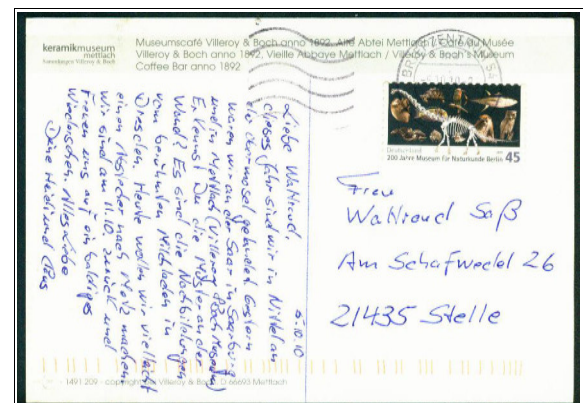 keramikmuseum
mettlach
Museumscafé Villeroy & Boch anno 1892, Alte Abtei Mettlach / Café du Musée
Villeroy & Boch anno 1892, Vieille Abbaye Mettlach / Villeroy & Boch's Museum
Coffee Bar anno 1892
BRIEFZENTRUM 54
Deutschland
200 Jahre Museum für Naturkunde Berlin 45
5.10.10
Liebe Waltraud,
dieses Jahr sind wir in Nittel an
der Obermosel gelandet. Gestern
waren wir an der Saar in Saarburg
und in Mettlach (Villeroy & Boch Museum)
Erkennst Du die Muster an der
Wand? Es sind die Nachbildungen
vom berühmten Milchladen in
Dresden. Heute wollen wir vielleicht
einen Abstecher nach Metz machen
Wir sind am 11.10. zurück und
freuen uns auf ein baldiges
Wiedersehen. Alles Liebe
Deine Heidi und Claus
Frau
Waltraud Saß
Am Schafwedel 26
21435 Stelle
1491 209 - copyright by Villeroy & Boch, D 66693 Mettlach